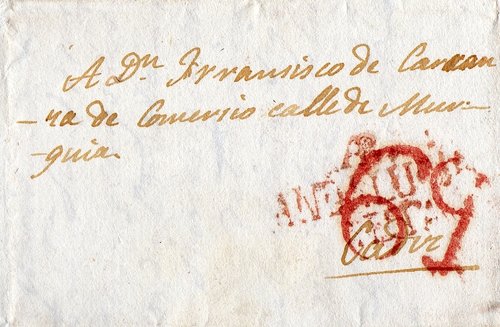 A Dn. Frransisco de Carran
-za de Comersio calle de Mur-
-guia.
ANDALUCIA
Cadiz